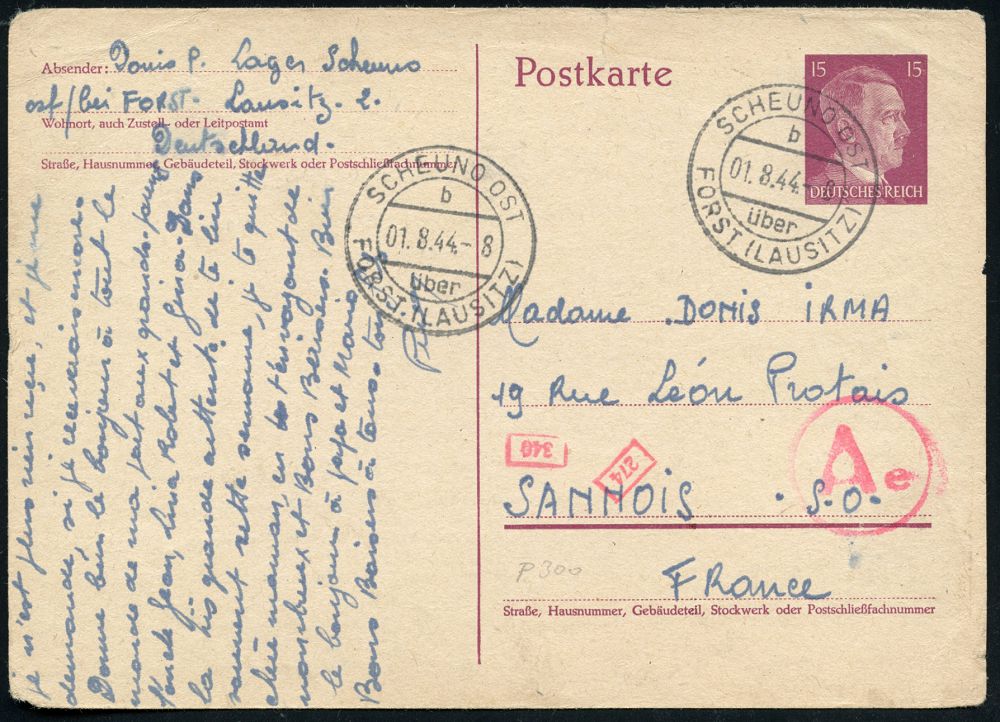 Absender: Donis P. Lager Scheuno
ost/bei FORST. Lausitz. 2.
Wohnort, auch Zustell- oder Leitpostamt
Deutschland.
Straße, Hausnummer, Gebäudeteil, Stockwerk oder Postschließfachnummer
Postkarte
15 15
DEUTSCHES REICH
SCHEUNO OST
b
01.8.44.- 8
über
FORST (LAUSITZ)
SCHEUNO OST
b
01.8.44.- 8
über
FORST (LAUSITZ)
Madame DONIS IRMA
19 Rue Léon Protais
340
274
Ae
SANNOIS . S.O.
P300
France
Straße, Hausnummer, Gebäudeteil, Stockwerk oder Postschließfachnummer
je n'est plus rien reçue, et je me
demande, si je recevrais encore
Donne bien le bonjour à tout le
monde de ma part aux grands-pères
Jean, Robert et Dans
la plus grande attente de te lire
cette semaine, je te quitte
chère maman, en t'envoyant de
nombreux et Bons Baisers. Bien
le bonjour à papa et Mario
Bons Baisers à tous. ton